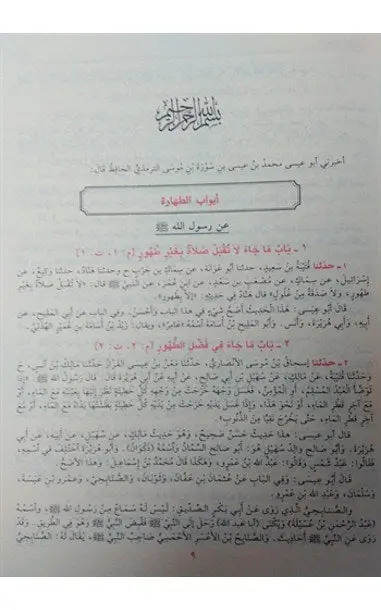 بسم الله الرحمن الرحيم
أخبرني أبو عيسى محمد بن عيسى بن سورة بن موسى الترمذي الحافظ قال:
أبواب الطهارة
عن رسول الله ﷺ
١ - بَابُ مَا جَاءَ لَا تُقْبَلُ صَلَاةٌ بِغَيْرِ طُهُورٍ [م: ١، ت: ١]
١ - حدثنا قُتَيْبَةُ بْنُ سَعِيدٍ، حدثنا أبُو عَوَانَةَ، عن سِمَاكِ بنِ حَرْبٍ ح وحدثنا هَنَّادٌ، حدثنا وَكِيعٌ، عن
إِسْرَائِيلَ، عن سِمَاكٍ، عن مُصْعَبِ بنِ سَعْدٍ، عن ابنِ عُمَرَ، عن النبيِّ ﷺ قال: «لاَ تُقْبَلُ صَلَاةٌ بِغَيْرِ
طُهُورٍ، ولا صَدَقَةٌ مِنْ غُلُولٍ» قال هَنَّادٌ في حَدِيثِهِ: «إلاَّ بِطُهُورٍ».
قال أبو عيسى: هذا الحَدِيثُ أصَحُّ شَيْءٍ في هذا الباب وأحْسَنُ. وفي الباب عن أبي المَلِيحِ، عن
أبِيهِ، وأبي هُرَيْرَةَ، وأنَسٍ. وأبو المَلِيحِ بنُ أُسَامَةَ اسْمُهُ «عَامِرٌ»، ويقال: زَيْدُ بنُ أُسَامَةَ بنِ عُمَيْرٍ الهُذَلِيُّ.
٢ - بَابُ مَا جَاءَ في فَضْلِ الطُّهُورِ [م: ٢، ت: ٢]
٢ - حدثنا إسحاقُ بنُ مُوسى الأنصاريُّ، حدثنا مَعْنُ بنُ عيسى القَزَّازُ حدثنا مَالِكُ بنُ أنَسٍ، ح
وَحَدَّثَنَا قُتَيْبَةُ، عن مَالِكٍ، عن سُهَيْلِ بنِ أبي صَالِحٍ، عن أبيه عن أبي هُرَيْرَةَ قال: قال رسولُ الله ﷺ: «إذَا
تَوَضَّأَ العَبْدُ المُسْلِمُ، أو المُؤْمِنُ، فَغَسَلَ وَجْهَهُ خَرَجَتْ مِنْ وَجْهِهِ كُلُّ خَطِيئَةٍ نَظَرَ إلَيْهَا بِعَيْنَيْهِ مَعَ المَاءِ، أو
مَعَ آخِرِ قَطْرِ المَاءِ، أو نَحْوَ هَذَا، وَإذَا غَسَلَ يَدَيْهِ خَرَجَتْ مِنْ يَدَيْهِ كُلُّ خَطِيئَةٍ بَطَشَتْهَا يَدَاهُ مَعَ المَاءِ، أو مَعَ
آخِرِ قَطْرِ المَاءِ، حَتَّى يَخْرُجَ نَقِيًّا مِنَ الذُّنُوبِ».
قال أبو عيسى: هذا حَدِيثٌ حَسَنٌ صَحِيحٌ، وَهُوَ حَدِيثُ مَالِكٍ، عن سُهَيْلٍ، عن أبيه، عن أبي
هُرَيْرَةَ. وأبو صَالِحٍ والِدُ سُهَيْلٍ هُوَ: أبو صَالِحٍ السَّمَّانُ وَاسْمُهُ (ذَكْوَانُ). وأبو هُرَيْرَةَ اخْتُلِفَ في اسْمِهِ،
فَقَالُوا: عَبْدُ شَمْسٍ وَقَالُوا: عَبْدُ الله بنُ عَمْرٍو، وَهَكَذَا قَالَ مُحَمَّدُ بنُ إسْمَاعِيلَ: وَهذَا الأَصَحُّ.
قال أبو عيسى: وَفِي البَابِ عَنْ عُثْمَانَ بنِ عَفَّانَ، وَثَوْبَانَ، وَالصُّنَابِحِيِّ، وَعَمْرِو بنِ عَبَسَةَ،
وَسَلْمَانَ، وَعَبْدِ الله بنِ عَمْرٍو.
وَالصُّنَابِحِيُّ الَّذِي رَوَى عَن أَبِي بَكْرٍ الصِّدِّيقِ: لَيْسَ لَهُ سَمَاعٌ مِنْ رَسُولِ الله ﷺ، وَاسْمُهُ
(عَبْدُ الرَّحْمنِ بنُ عُسَيْلَةَ) وَيُكْنَى (أبا عبد الله) رَحَلَ إلى النَّبِيِّ ﷺ فَقُبِضَ النَّبِيُّ ﷺ وَهُوَ في الطَّرِيقِ. وَقَدْ
رَوَى عَن النَّبِيِّ ﷺ أَحَادِيثَ. وَالصُّنَابِحُ بنُ الأَعْسَرِ الأَحْمَسِيُّ صَاحِبُ النَّبِيِّ ﷺ، يُقَالُ لَهُ: الصُّنَابِحِيُّ
٩